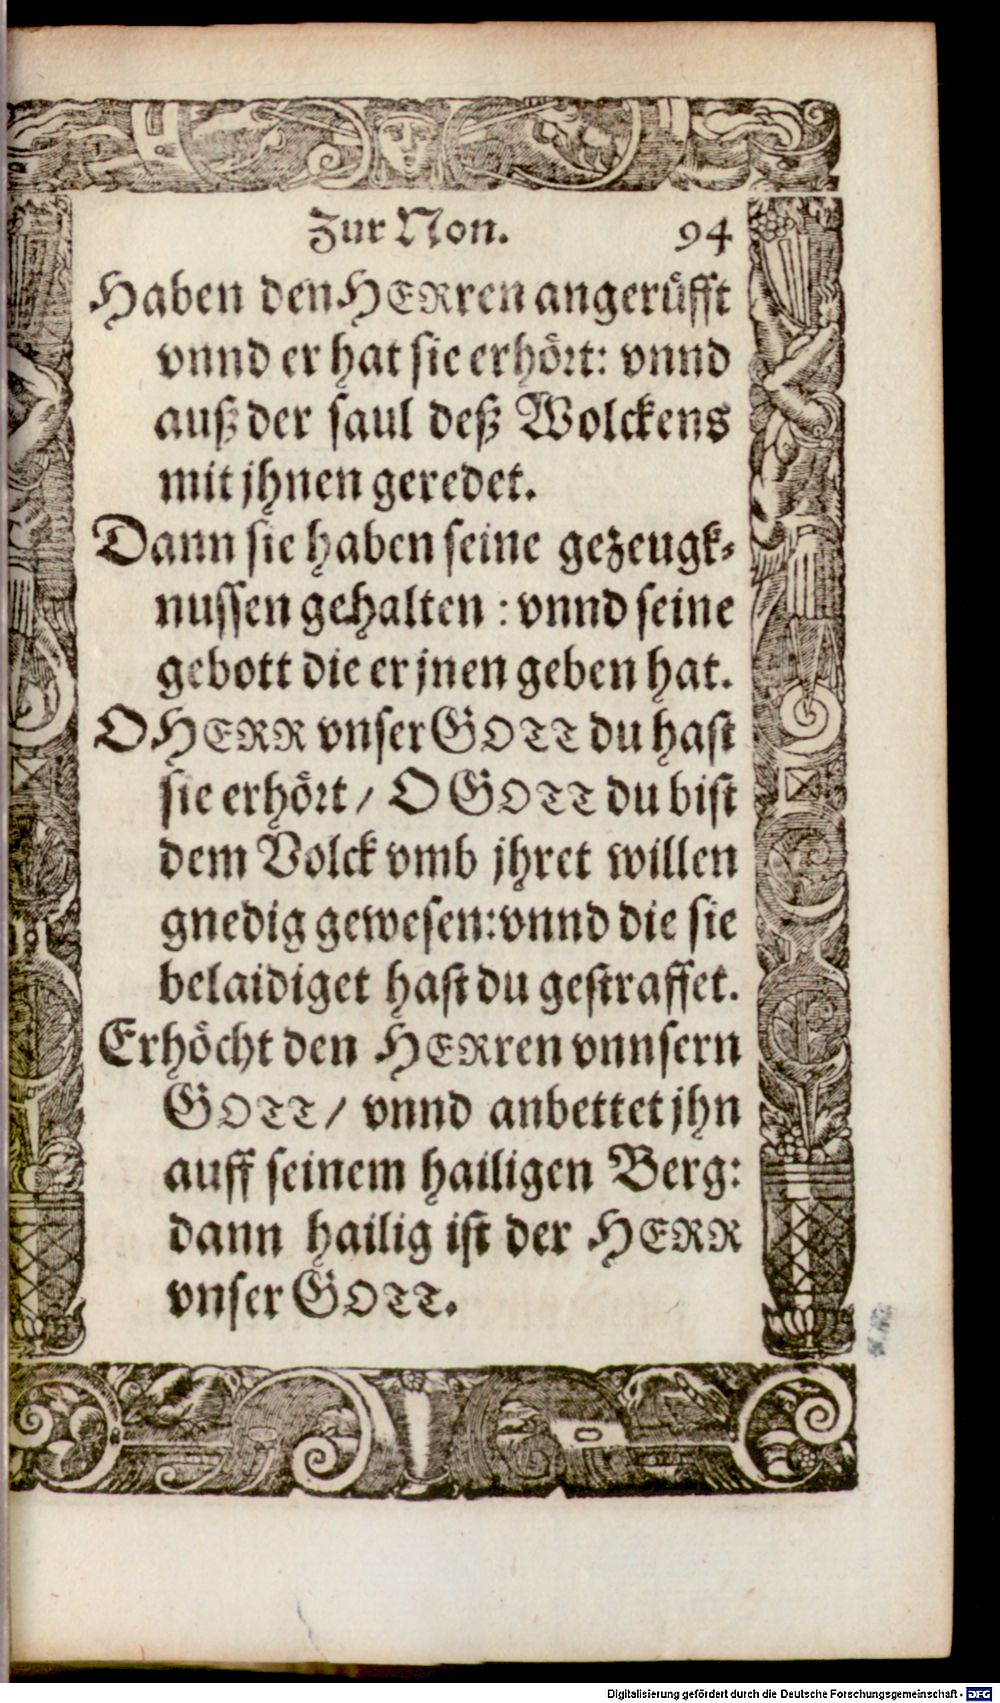 Zur Non. 94
Haben den HERren angerüfft
vnnd er hat sie erhört: vnnd
auß der saul deß Wolckens
mit jhnen geredet.
Dann sie haben seine gezeugk-
nussen gehalten : vnnd seine
gebott die er jnen geben hat.
O HERR vnser GOTT du hast
sie erhört / O GOTT du bist
dem Volck vmb jhret willen
gnedig gewesen: vnnd die sie
belaidiget hast du gestraffet.
Erhöcht den HERren vnnsern
GOTT / vnnd anbettet jhn
auff seinem hailigen Berg:
dann hailig ist der HERR
vnser GOTT.
Digitalisierung gefördert durch die Deutsche Forschungsgemeinschaft - DFG